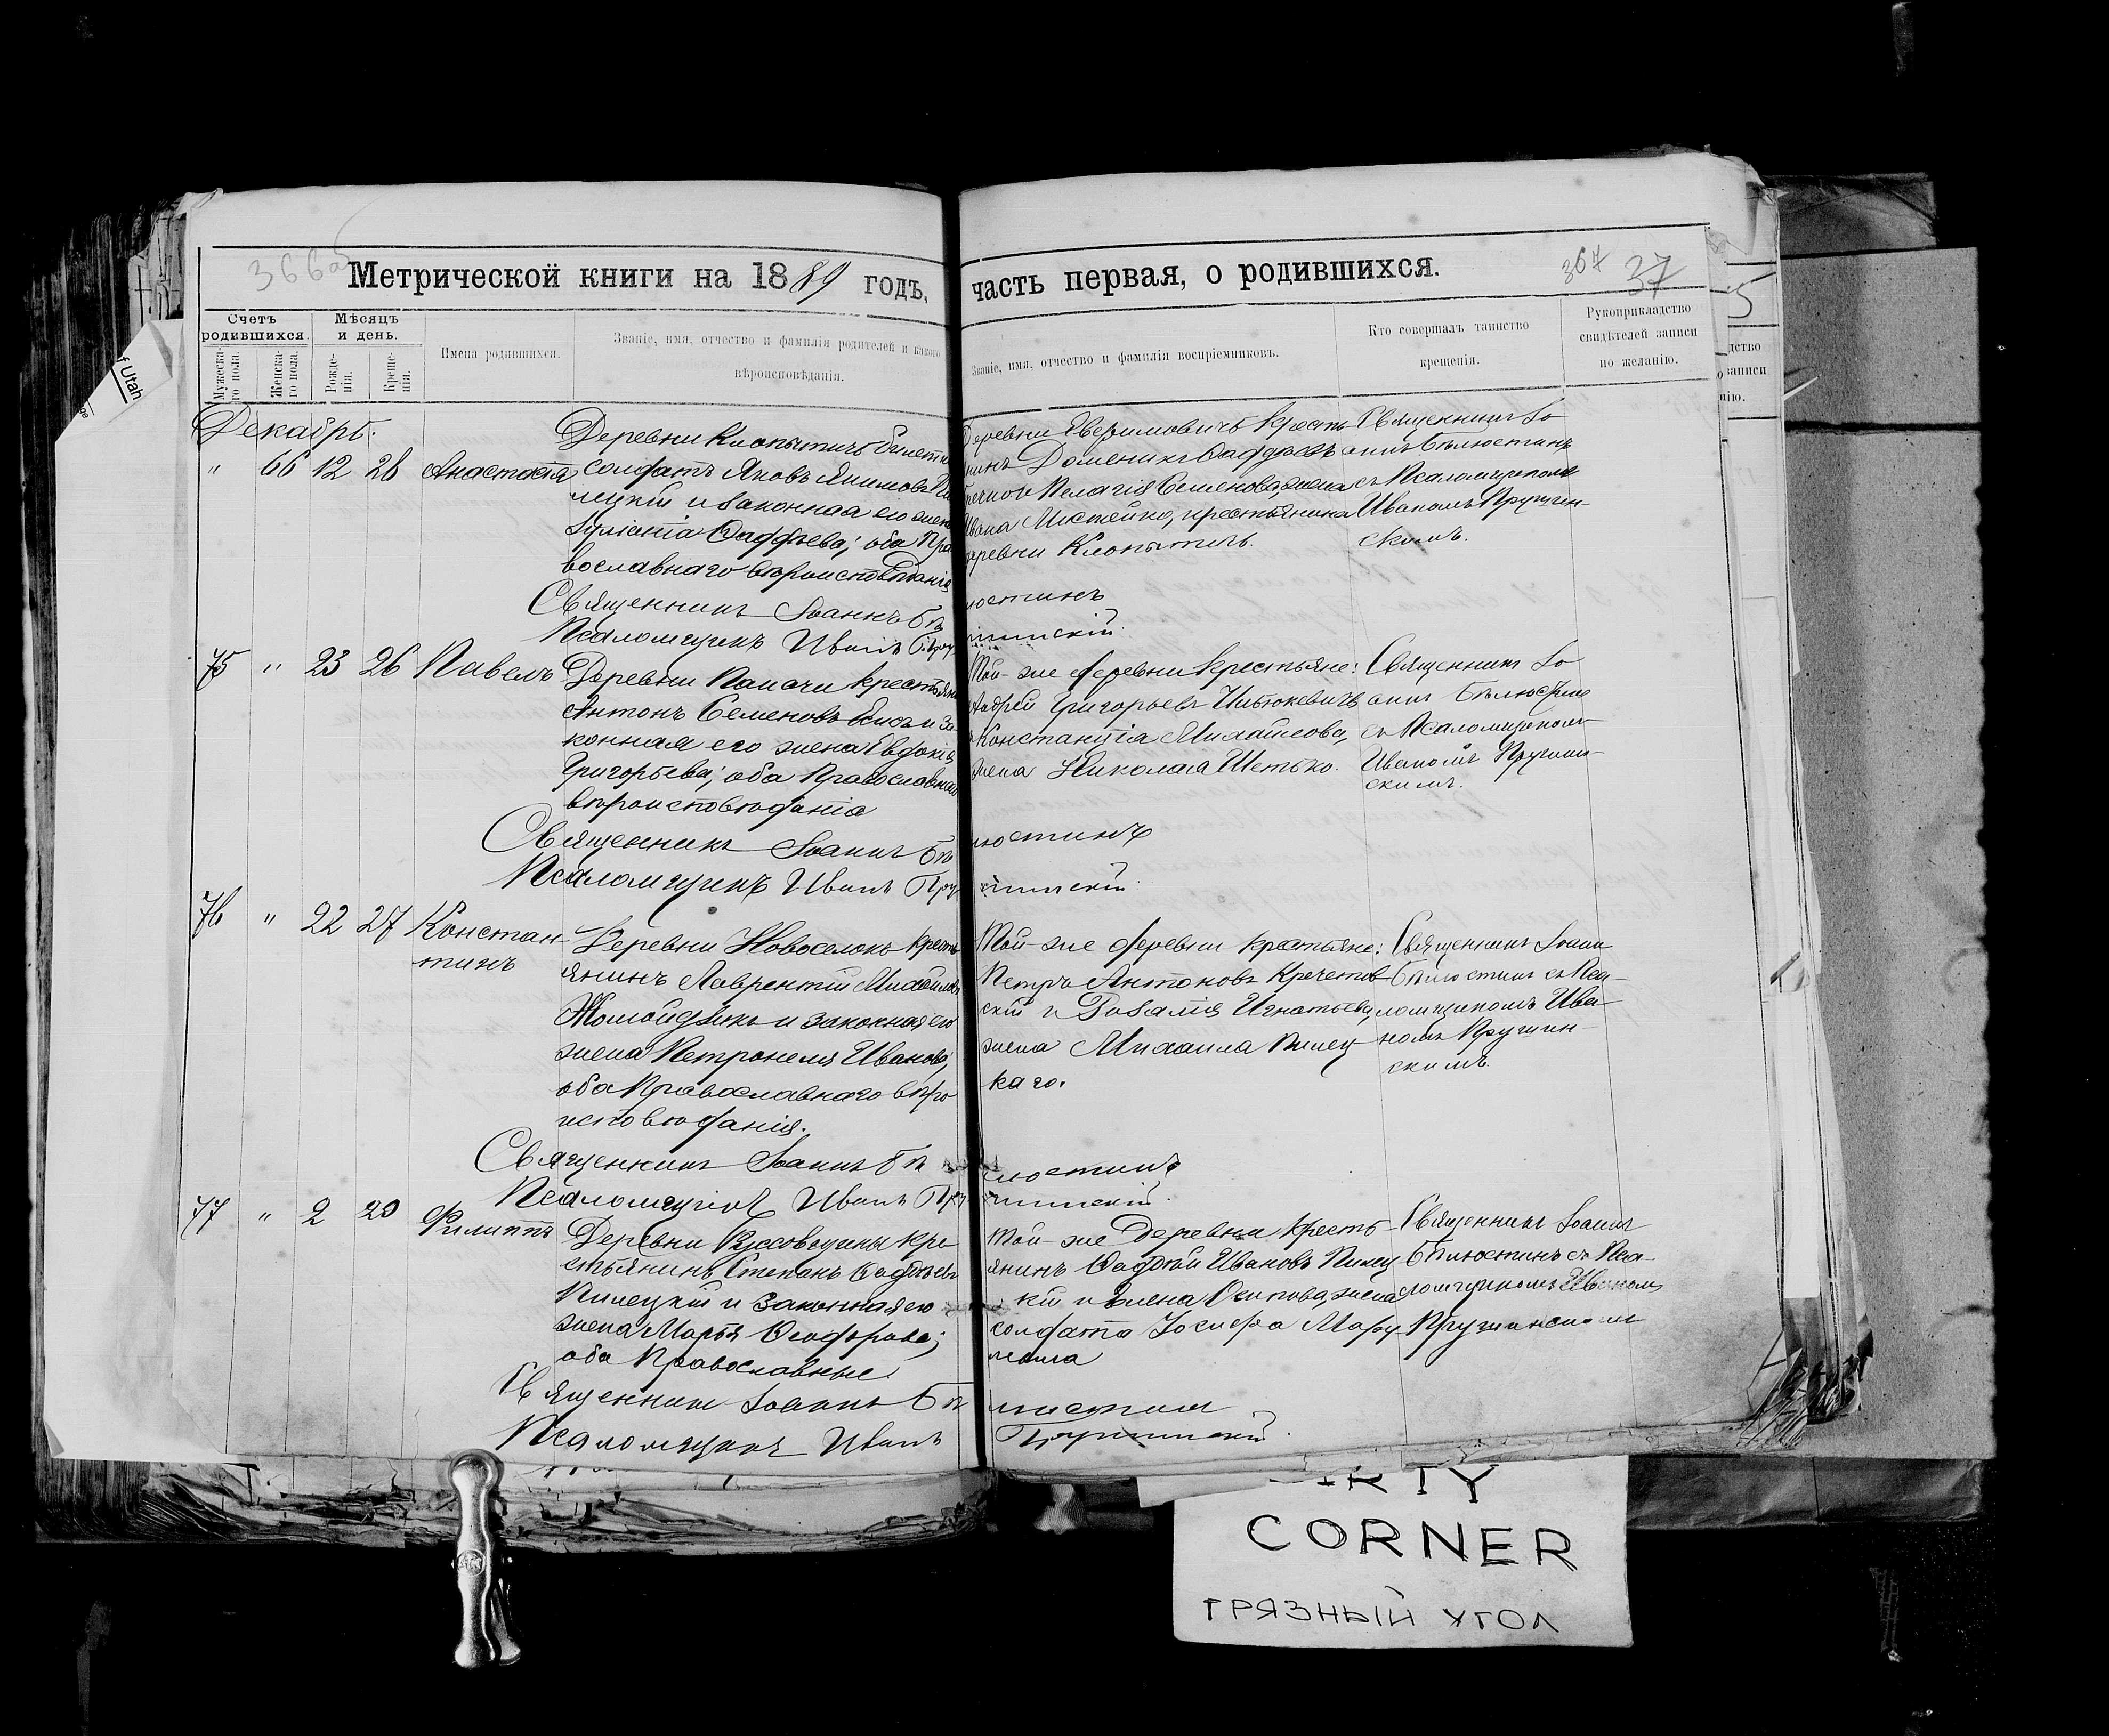 366об
Метрической книги на 1889 годъ, часть первая, о родившихся.
367 37
Счетъ родившихся.
Мѣсяцъ и день.
Мужеска-го пола.
Женска-го пола.
Рожде-нія.
Креще-нія.
Имена родившихся.
Званіе, имя, отчество и фамилія родителей и какого
вѣроисповѣданія.
Званіе, имя, отчество и фамилія воспріемниковъ.
Кто совершалъ таинство
крещенія.
Рукоприкладство
свидѣтелей записи
по желанію.
Декабрь.
" 66 12 26 Анастасія
Деревни Клопытичъ
солдатъ Яковъ Якимовъ
лецкій и законная его жена
Ѳаддѣева; оба Пра
вославнаго вѣроисповѣданія
деревни кресть
Доминикъ Ѳаддѣевъ
Пелагія Семенова, жена
Ивана Мистейко, крестьянина
деревни Клопытичъ.
Священникъ Іо
аннъ Бѣлюстинъ
съ Псаломщикомъ
Иваномъ Пружин-
скимъ.
Священникъ Іоаннъ Бѣлюстинъ
Псаломщикъ Иванъ Пружинскій.
75 " 23 26 Павелъ
Деревни крестьян
Антонъ Семеновъ и за
конная его жена Евдокія
Григорьева; оба Православнаго
вѣроисповѣданія
Той-же деревни крестьяне:
Андрей Григорьевъ
Констанція Михайлова,
жена Николая Шетько.
Священникъ Іо
аннъ
съ Псаломщикомъ
Иваномъ Пружин-
скимъ.
Священникъ Іоаннъ Бѣлюстинъ
Псаломщикъ Иванъ Пружинскій.
76 " 22 27 Констан-
тинъ
Деревни Новоселокъ кресть
янинъ Лаврентій Михайловъ
и законная его
жена Петронеля Иванова;
оба Православнаго вѣро
исповѣданія.
Той-же деревни крестьяне:
Петръ Антоновъ
скій и Розалія Игнатьева,
жена Михаила Пилец
каго.
Священникъ Іоаннъ
Бѣлюстинъ съ Пса-
ломщикомъ Ива-
номъ Пружин-
скимъ.
Священникъ Іоаннъ Бѣлюстинъ
Псаломщикъ Иванъ Пружинскій.
77 " 2 20 Филиппъ
Деревни кре-
стьянинъ Степанъ Ѳаддѣевъ
Пилецкій и законная его
жена Марія Ѳеодорова;
оба Православные.
Той-же деревни кресть-
янинъ Ѳаддѣй Ивановъ Пилец
кій и Елена Осипова, жена
солдата Іосифа
Священникъ Іоаннъ
Бѣлюстинъ съ Пса-
ломщикомъ Иваномъ
Пружинскимъ
Священникъ Іоаннъ Бѣлюстинъ
Псаломщикъ Иванъ Пружинскій.
f Utah
5
дство
записи
нію.
DIRTY
CORNER
ГРЯЗНЫЙ УГОЛ